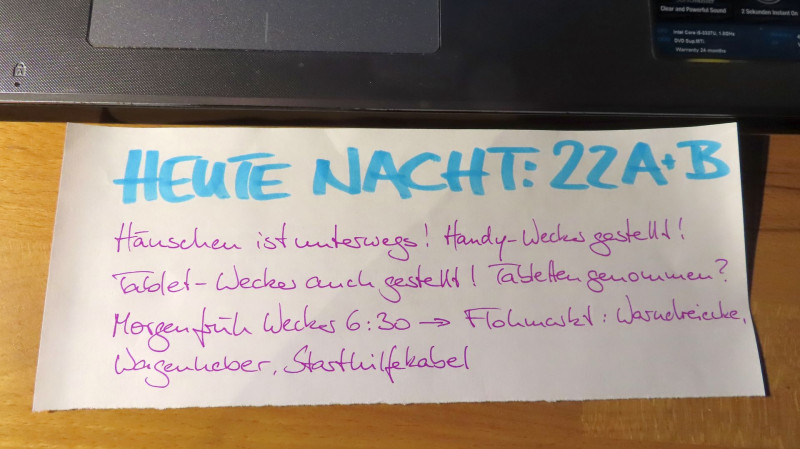 Clear and Powerful Sound
2 Sekunden Instant On
Intel Core i5-3337U, 1.8GHz
Warranty 24 months
HEUTE NACHT: 22A+B
Häuschen ist unterwegs! Handy-Wecker gestellt!
Tablet-Wecker auch gestellt! Tabletten genommen?
Morgen früh Wecker 6:30 → Flohmarkt: Warndreiecke,
Wagenheber, Starthilfekabel